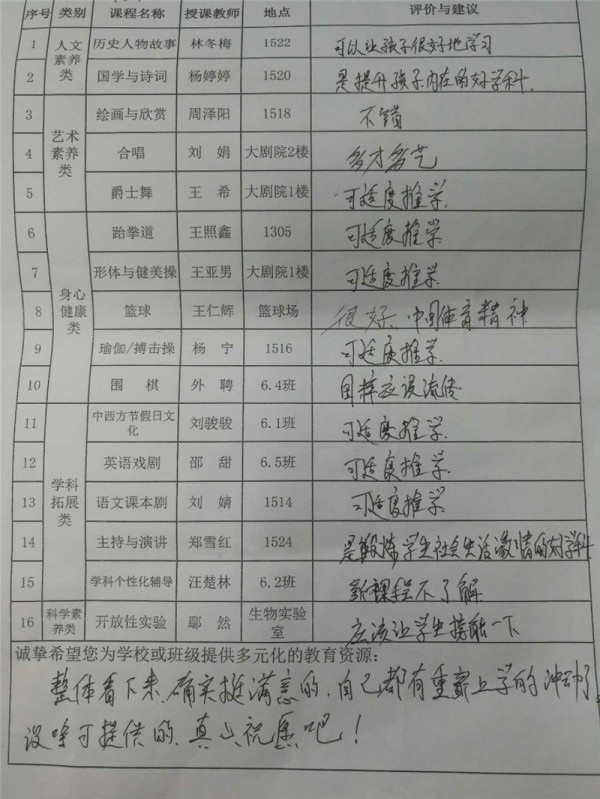 序号 类别 课程名称 授课教师 地点 评价与建议
1 人文素养类 历史人物故事 林冬梅 1522 可以让孩子很好地学习
2 国学与诗词 杨婷婷 1520 是提升孩子内在的好学科.
3 艺术素养类 绘画与欣赏 周泽阳 1518 不错
4 合唱 刘 娟 大剧院2楼 多才多艺
5 爵士舞 王 希 大剧院1楼 可适度推学.
6 身心健康类 跆拳道 王照鑫 1305 可适度推学
7 形体与健美操 王亚男 大剧院1楼 可适度推学
8 篮球 王仁辉 篮球场 很好、中国体育精神
9 瑜伽/搏击操 杨 宁 1516 可适度推学.
10 围 棋 外 聘 6.4班 国粹应该流传
11 学科拓展类 中西方节假日文化 刘骏骏 6.1班 可适度推学.
12 英语戏剧 邵 甜 6.5班 可适度推学.
13 语文课本剧 刘 婧 1514 可适度推学
14 主持与演讲 郑雪红 1524 是锻炼学生社会生活激情的好学科
15 学科个性化辅导 汪楚林 6.2班 新课程不了解
16 科学素养类 开放性实验 鄢 然 生物实验室 应该让学生接触一下
诚挚希望您为学校或班级提供多元化的教育资源:
整体看下来,确实挺满意的,自己都有重新上学的冲动了
没啥可提供的、真心祝愿吧!